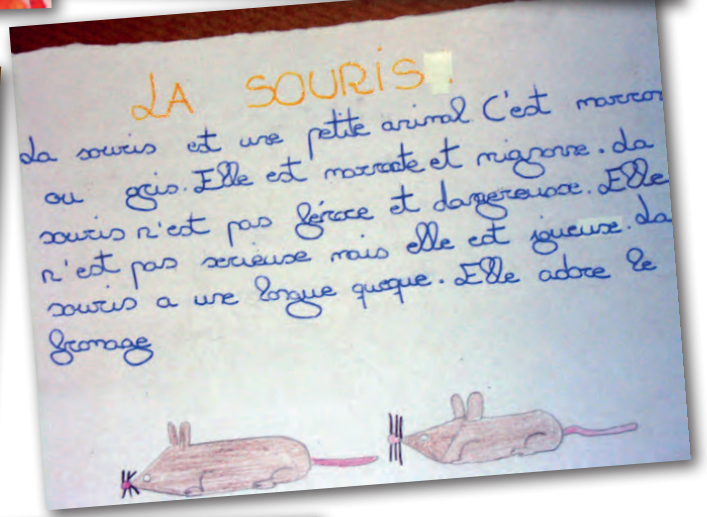 LA SOURIS.
La souris est une petite animal. C'est marron
ou gris. Elle est marrante et mignonne. La
souris n'est pas féroce et dangereuse. Elle
n'est pas serieuse mais elle est joueuse. La
souris a une longue queque. Elle adore le
fromage